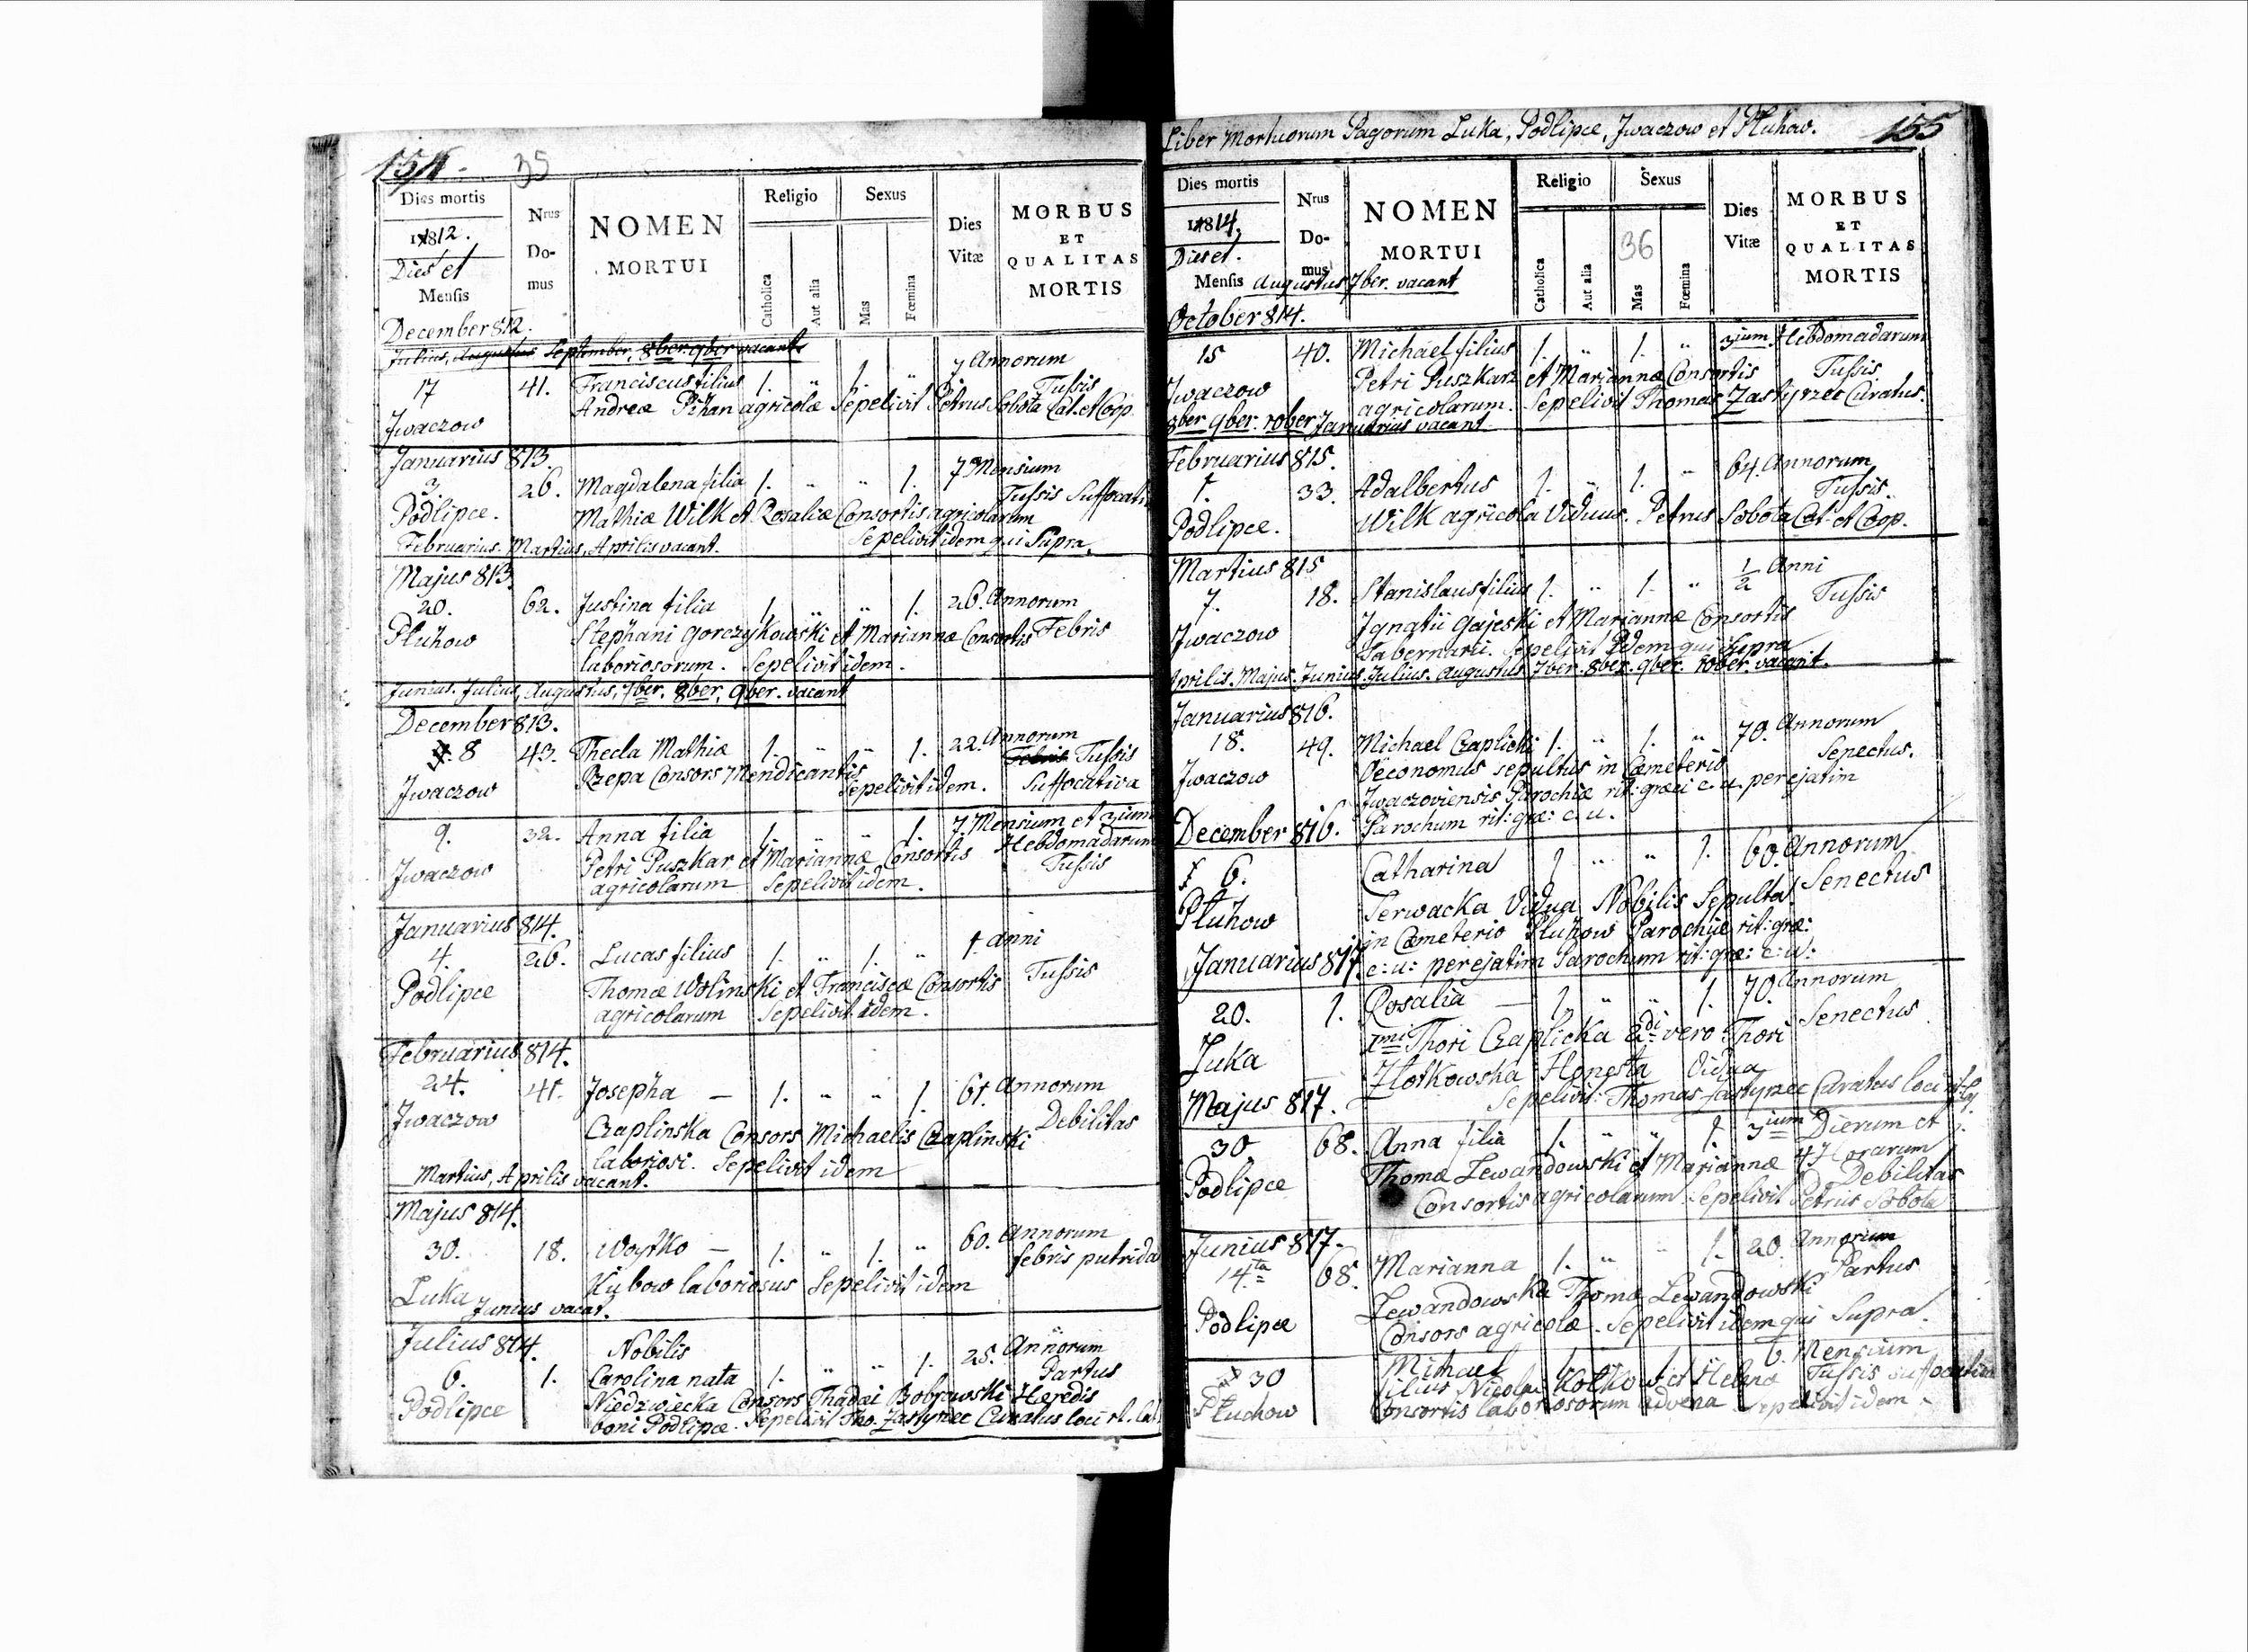 154. 35
Dies mortis
1812.
Dies et
Mensis
Nrus
Do-
mus
NOMEN
MORTUI
Religio
Catholica
Aut alia
Sexus
Mas
Fœmina
Dies
Vitæ
MORBUS
ET
QUALITAS
MORTIS
December 812.
Julius, Augustus September, 8ber. 9ber vacant
17 41. Franciscus filius 1. " 1. " 7 Annorum
Andreæ Pihan agricolæ Sepelivit Petrus Sobota Cat. et Coop. Tussis
Jwaczow
Januarius 813
3. 26. Magdalena filia 1. " " 1. 7 Mensium
Podlipce. Mathiæ Wilk et Rosaliæ Consortis agricolarum Tussis Suffocati
Februarius. Martius, Aprilis vacant. Sepelivit idem qui Supra.
Majus 813.
20. 62. Justina filia 1. " " 1. 26. Annorum
Pluhow Stephani Gorczykowski et Mariannæ Consortis Febris
laboriosorum. Sepelivit idem.
Junius. Julius, Augustus, 7ber. 8ber, 9ber. vacant
December 813.
8 43. Thecla Mathiæ 1. " " 1. 22. Annorum
Rzepa Consors Mendicantis Febris Tussis
Jwaczow Sepelivit idem. Suffocativa
9. 32. Anna filia 1. " " 1. 7. Mensium et 3ium
Jwaczow Petri Puszkar et Mariannæ Consortis Hebdomadarum
agricolarum Sepelivit idem. Tussis
Januarius 814.
4. 26. Lucas filius 1. " 1. " 1. Anni
Podlipce Thomæ Wolinski et Franciscæ Consortis Tussis
agricolarum Sepelivit idem.
Februarius 814.
24. 41. Josepha — 1. " " 1. 61. Annorum
Jwaczow Czaplinska Consors Michaelis Czaplinski Debilitas
laboriosi. Sepelivit idem
Martius, Aprilis vacant.
Majus 814.
30. 18. Woytko — 1. " 1. " 60. Annorum
Luka Kubow laboriosus Sepelivit idem febris putrida
Junius vacat.
Julius 814. Nobilis
6. 1. Carolina nata 1. " " 1. 25. Annorum
Podlipce Niedzwiecka Consors Thadæi Bobrowski Heredis Partus
boni Podlipce. Sepelivit Tho. Zastyrzec Curatus loci rt. Lat.
Liber Mortuorum Pagorum Luka, Podlipce, Jwaczow et Pluhow. 155
Dies mortis
1814.
Dies et.
Mensis
Nrus
Do-
mus
NOMEN
MORTUI
Religio
Catholica
Aut alia
Sexus
36
Mas
Fœmina
Dies
Vitæ
MORBUS
ET
QUALITAS
MORTIS
Augustus 7ber. vacant
October 814.
15 40. Michael filius 1. " 1. " 3ium Hebdomadarum
Jwaczow Petri Puszkarz et Mariannæ Consortis Tussis
agricolarum. Sepelivit Thomas Zastyrzec Curatus.
8ber 9ber. 10ber Januarius vacant
Februarius 815.
1. 33. Adalbertus 1. " 1. " 64. Annorum
Podlipce. Wilk agricola Viduus. Petrus Sobota Cat. et Coop. Tussis.
Martius 815
7. 18. Stanislaus filius 1. " 1. " 1/2 Anni
Jwaczow Jgnatii Gajeski et Mariannæ Consortis Tussis
Tabernarii. Sepelivit Idem qui Supra
Aprilis. Majus. Junius. Julius. Augustus 7ber. 8ber. 9ber. 10ber. vacant.
Januarius 816.
18. 49. Michael Czaplicki 1. " 1. " 70. Annorum
Jwaczow Oeconomus sepultus in Cæmeterio Senectus.
Jwaczoviensis Parochiæ rit: græci c. u. per ejatim
Parochum rit: græ: c: u.
December 816.
6. Catharina 1 " " 1. 60. Annorum
Pluhow Serwacka Vidua Nobilis Sepulta Senectus
in Cæmeterio Pluhow Parochiæ rit: græ:
c: u: per ejatim Parochum rit: græ: c: u:
Januarius 817.
20. 1. Rosalia — 1. " " 1. 70. Annorum
Luka 1mi Thori Czaplicka 2di vero Thori Senectus
Zlotkowska Honesta Vidua
Sepelivit: Thomas Zastyrzec Curatus loci
Majus 817.
30. 68. Anna filia 1. " " 1. 3ium Dierum et
Podlipce Thomæ Lewandowski et Mariannæ 4 Horarum
Consortis agricolarum. Sepelivit Petrus Sobota Debilitas
Junius 817.
14ta 68. Marianna 1. " " 1. 20. Annorum
Podlipce Lewandowska Thomæ Lewandowski Partus
Consors agricolæ. Sepelivit idem qui Supra.
30 Michael 6. Mensium
Pluchow filius Nicolai Kotkow et Helenæ Tussis suffocativa
Consortis laboriosorum advena Sepelivit idem